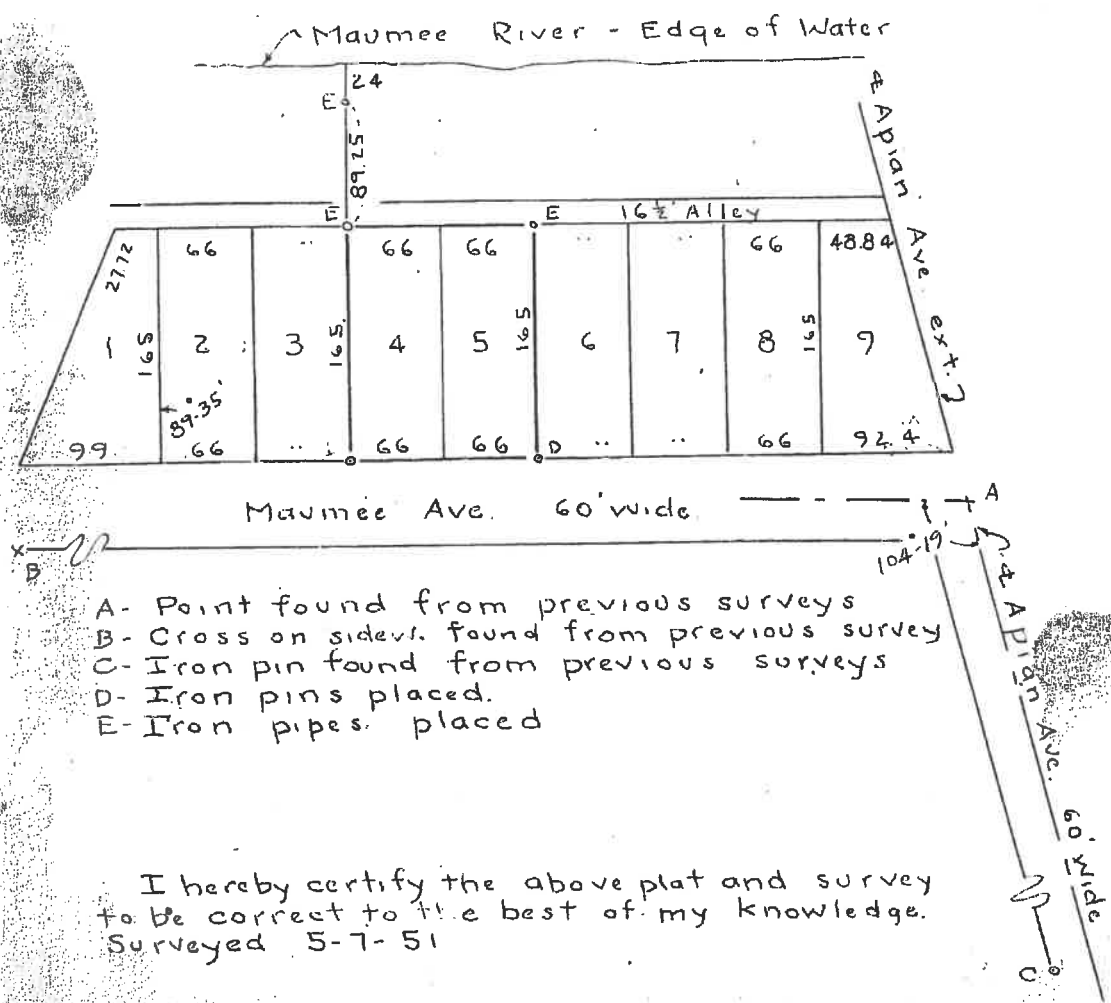 Maumee River - Edge of Water
24
E
89.25
℄ Apian Ave. ext.
E
E 16½' Alley
27.72
66 .. 66 66 .. .. 66 48.84
1 165 2 3 165. 4 5 165 6 7 8 165 9
89°-35'
99. 66 .. 66 66 D .. .. 66 92.4
Maumee Ave. 60' wide
A
B
104°-19'
℄ Apian Ave. 60' wide
A- Point found from previous surveys
B- Cross on sidewk. found from previous survey
C- Iron pin found from previous surveys
D- Iron pins placed.
E- Iron pipes. placed
I hereby certify the above plat and survey
to be correct to the best of my knowledge.
Surveyed 5-7-51
C